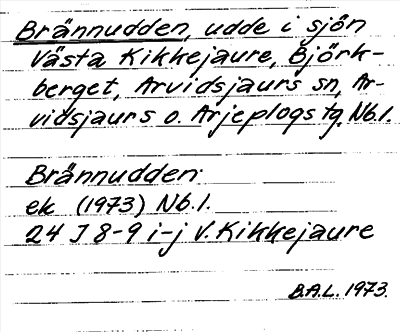 Brännudden, udde i sjön
Västa Kikkejaure, Björk-
berget, Arvidsjaurs sn, Ar-
vidsjaurs o. Arjeplogs tg. Nb.l.
Brännudden:
ek (1973) Nb.l.
24 J 8-9 i-j V. Kikkejaure
B.A.L. 1973.